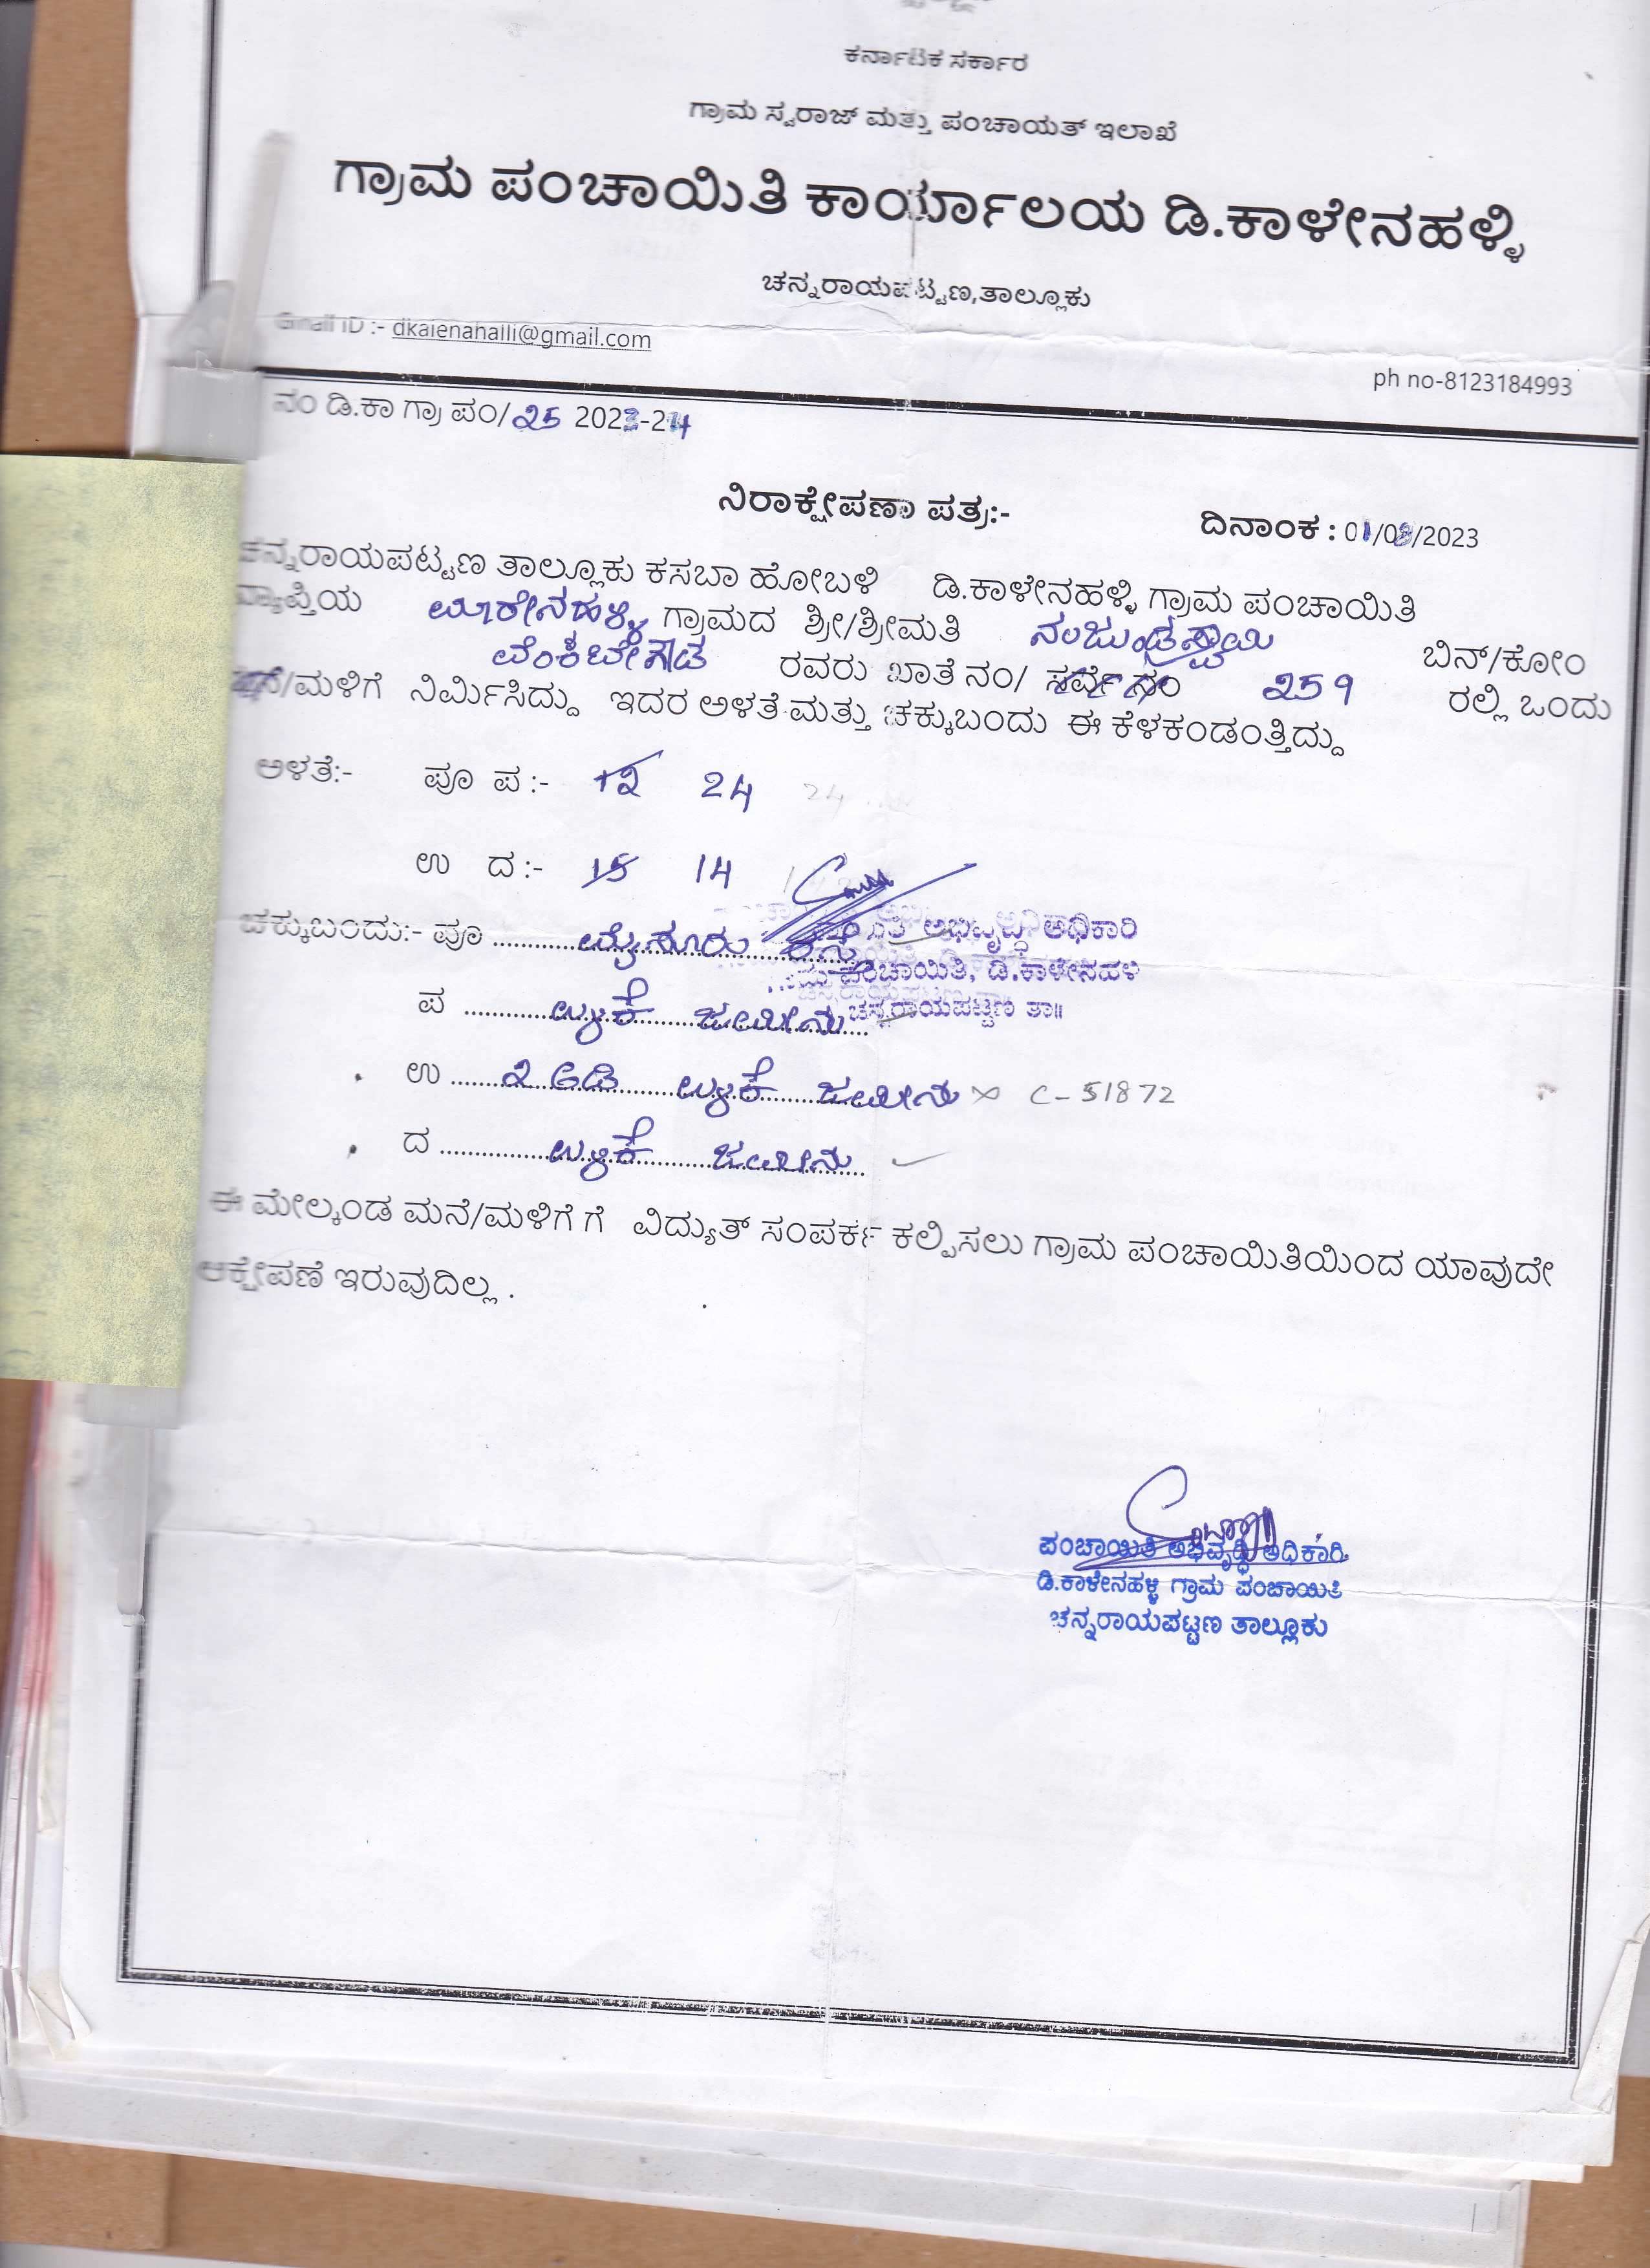 ಕರ್ನಾಟಕ ಸರ್ಕಾರ
ಗ್ರಾಮ ಸ್ವರಾಜ್ ಮತ್ತು ಪಂಚಾಯತ್ ಇಲಾಖೆ
ಗ್ರಾಮ ಪಂಚಾಯಿತಿ ಕಾರ್ಯಾಲಯ ಡಿ.ಕಾಳೇನಹಳ್ಳಿ
ಚನ್ನರಾಯಪಟ್ಟಣ,ತಾಲ್ಲೂಕು
Gmail ID :- dkalenahalli@gmail.com
ph no-8123184993
ನಂ ಡಿ.ಕಾ ಗ್ರಾ ಪಂ/25 2023-24
ನಿರಾಕ್ಷೇಪಣಾ ಪತ್ರ:-
ದಿನಾಂಕ : 01/08/2023
ಚನ್ನರಾಯಪಟ್ಟಣ ತಾಲ್ಲೂಕು ಕಸಬಾ ಹೋಬಳಿ ಡಿ.ಕಾಳೇನಹಳ್ಳಿ ಗ್ರಾಮ ಪಂಚಾಯಿತಿ
ವ್ಯಾಪ್ತಿಯ ಗ್ರಾಮದ ಶ್ರೀ/ಶ್ರೀಮತಿ ನಂಜುಂಡಸ್ವಾಮಿ ಬಿನ್/ಕೋಂ
ವೆಂಕಟೇಗೌಡ ರವರು ಖಾತೆ ನಂ/ ಸರ್ವೆ ನಂ 259 ರಲ್ಲಿ ಒಂದು
ಮನೆ/ಮಳಿಗೆ ನಿರ್ಮಿಸಿದ್ದು ಇದರ ಅಳತೆ ಮತ್ತು ಚಕ್ಕುಬಂದು ಈ ಕೆಳಕಂಡಂತ್ತಿದ್ದು
ಅಳತೆ:- ಪೂ ಪ :- 12 24
ಉ ದ :- 15 14
ಚಕ್ಕುಬಂದು:- ಪೂ ಮೈಸೂರು ರಸ್ತೆ
ಅಭಿವೃದ್ಧಿ ಅಧಿಕಾರಿ
ಪಂಚಾಯಿತಿ, ಡಿ.ಕಾಳೇನಹಳ್ಳಿ
ಚನ್ನರಾಯಪಟ್ಟಣ ತಾ॥
ಪ ಉಳಿಕೆ ಜಮೀನು
ಉ ೨ ಅಡಿ ಉಳಿಕೆ ಜಮೀನು × C-51872
ದ ಉಳಿಕೆ ಜಮೀನು
ಈ ಮೇಲ್ಕಂಡ ಮನೆ/ಮಳಿಗೆ ಗೆ ವಿದ್ಯುತ್ ಸಂಪರ್ಕ ಕಲ್ಪಿಸಲು ಗ್ರಾಮ ಪಂಚಾಯಿತಿಯಿಂದ ಯಾವುದೇ
ಆಕ್ಷೇಪಣೆ ಇರುವುದಿಲ್ಲ .
ಪಂಚಾಯಿತಿ ಅಭಿವೃದ್ಧಿ ಅಧಿಕಾರಿ
ಡಿ.ಕಾಳೇನಹಳ್ಳಿ ಗ್ರಾಮ ಪಂಚಾಯಿತಿ
ಚನ್ನರಾಯಪಟ್ಟಣ ತಾಲ್ಲೂಕು